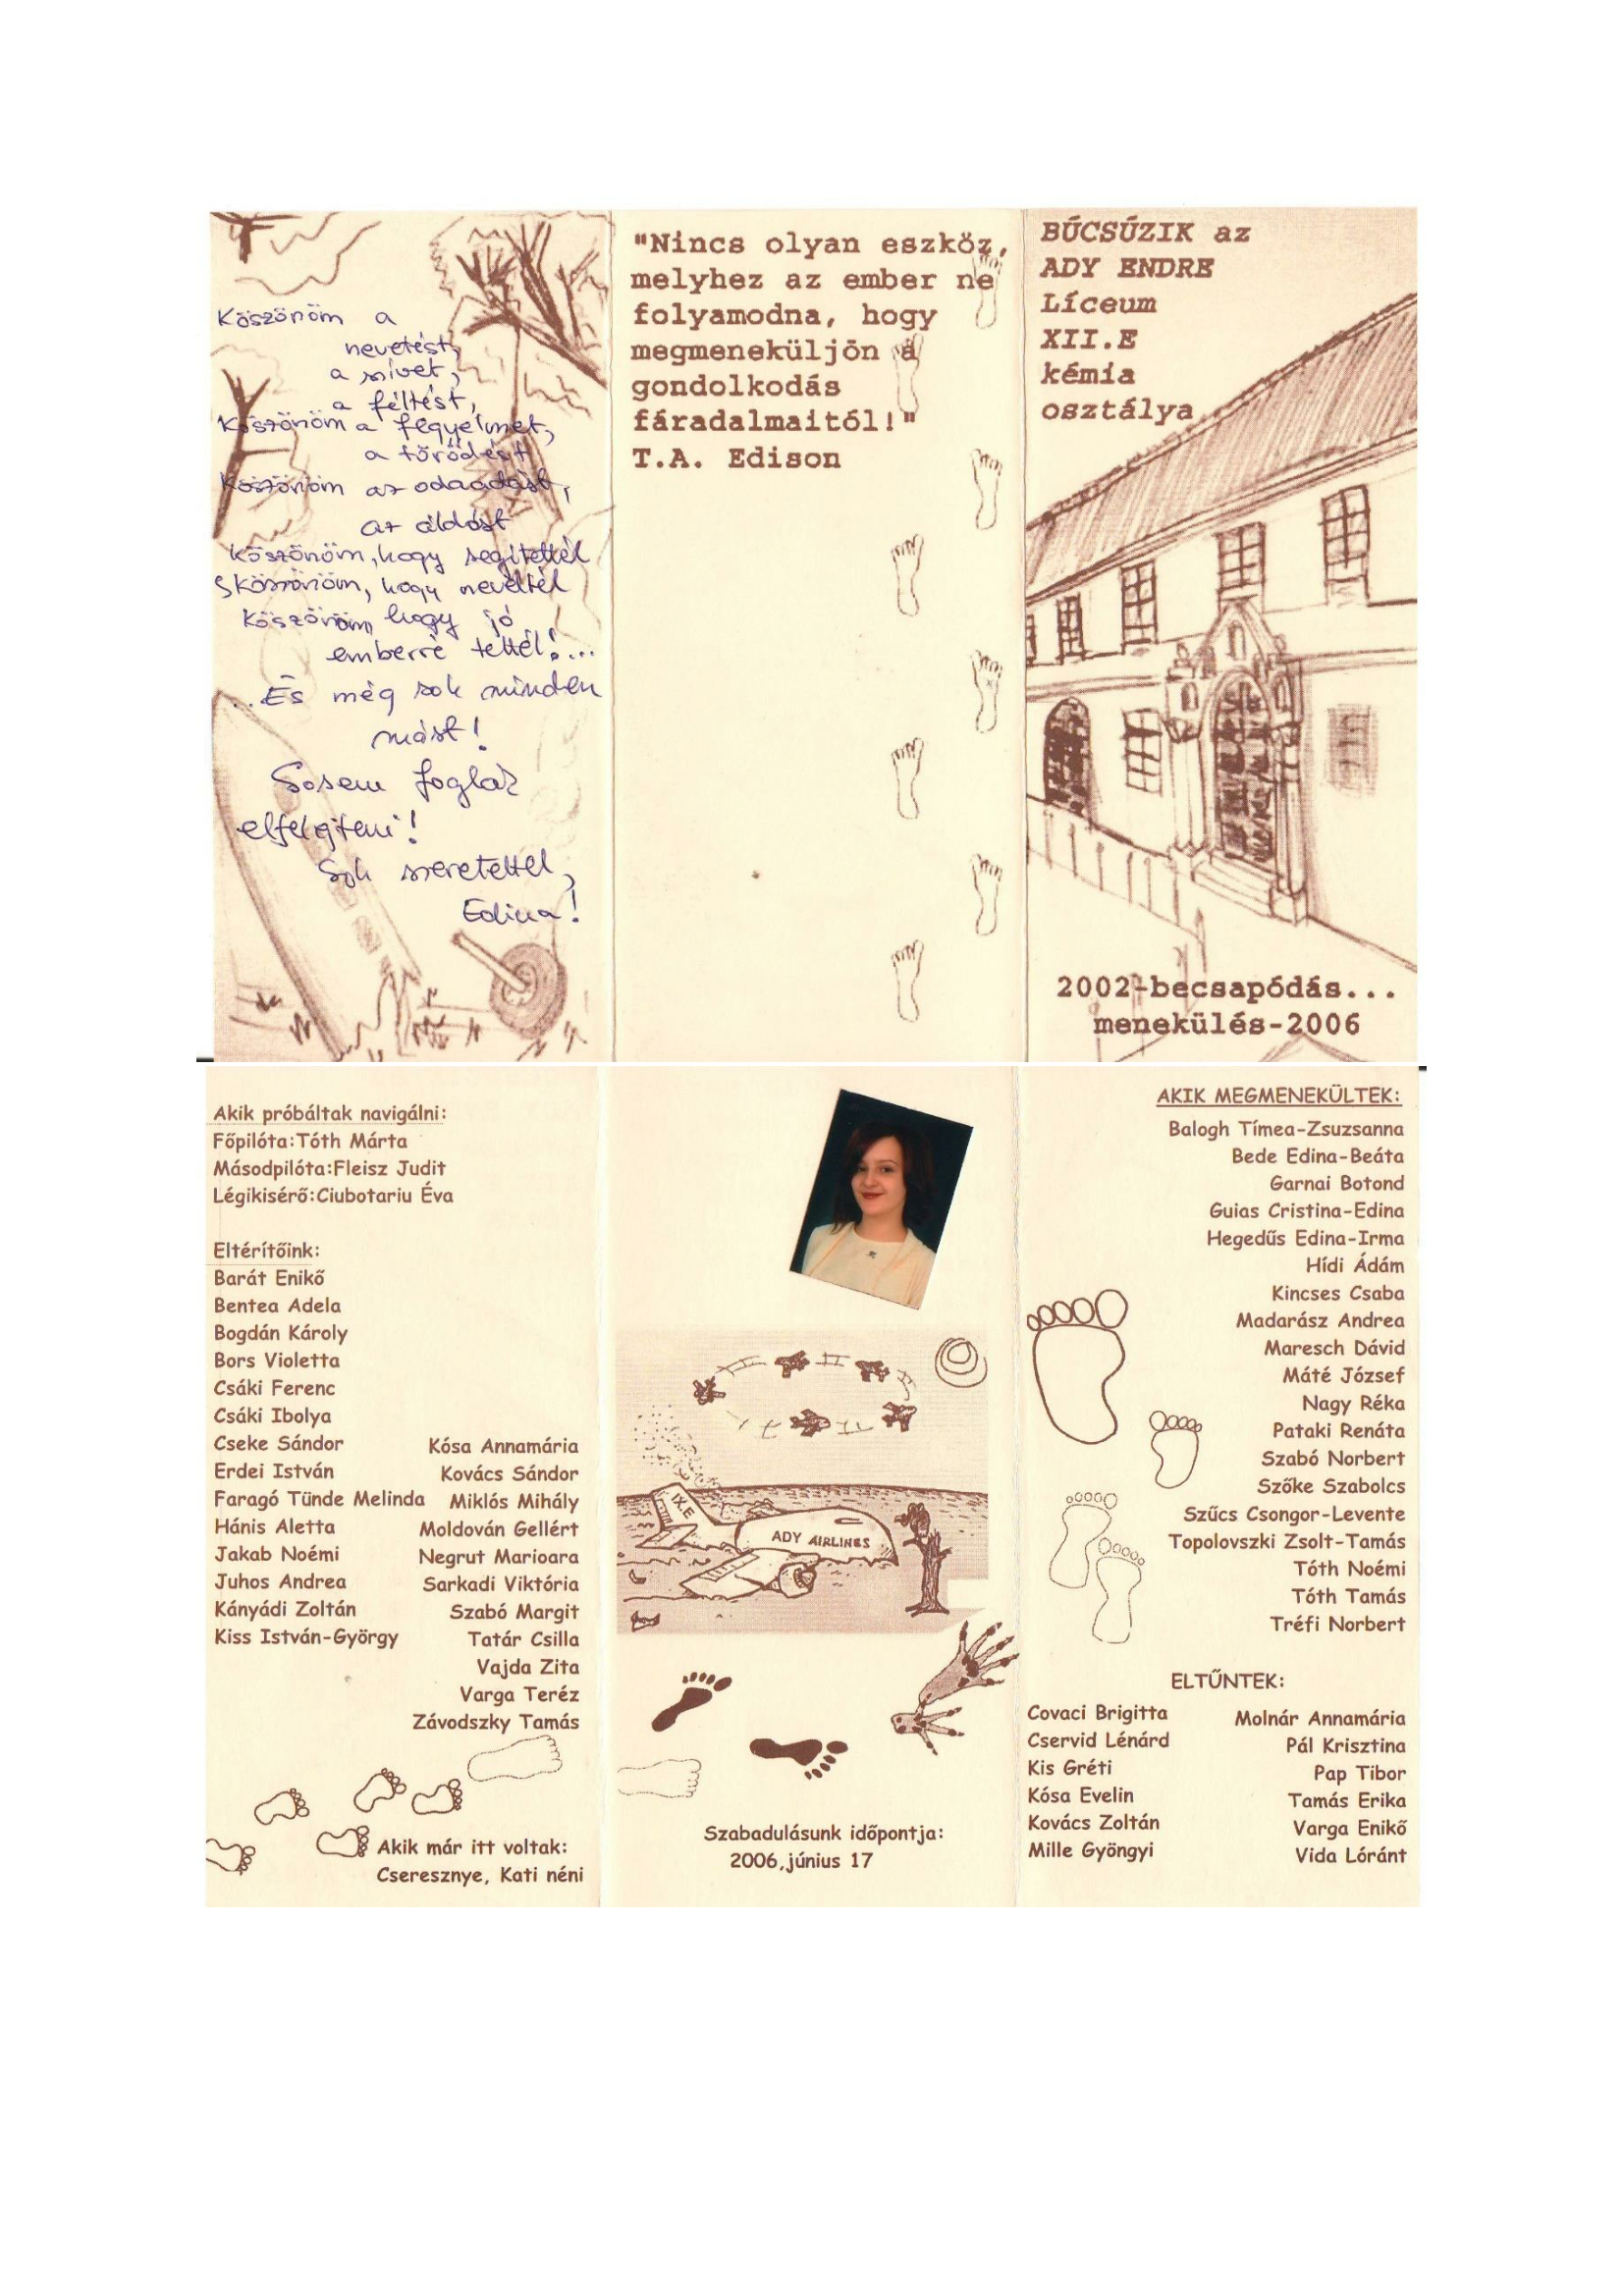 Köszönöm a
nevetést,
a szívet,
a féltést,
Köszönöm a fegyelmet,
a törődést
Köszönöm az odaadást,
az áldást
Köszönöm, hogy segítettél
Köszönöm, hogy neveltél
Köszönöm, hogy jó
emberré tettél!...
...És még sok minden
mást!
Sosem foglak
elfelejteni!
Sok szeretettel,
Edina!
"Nincs olyan eszköz,
melyhez az ember ne
folyamodna, hogy
megmeneküljön a
gondolkodás
fáradalmaitól!"
T.A. Edison
BÚCSÚZIK az
ADY ENDRE
Líceum
XII.E
kémia
osztálya
2002-becsapódás...
menekülés-2006
Akik próbáltak navigálni:
Főpilóta:Tóth Márta
Másodpilóta:Fleisz Judit
Légikisérő:Ciubotariu Éva
Eltérítőink:
Barát Enikő
Bentea Adela
Bogdán Károly
Bors Violetta
Csáki Ferenc
Csáki Ibolya
Cseke Sándor
Erdei István
Faragó Tünde Melinda
Hánis Aletta
Jakab Noémi
Juhos Andrea
Kányádi Zoltán
Kiss István-György
Kósa Annamária
Kovács Sándor
Miklós Mihály
Moldován Gellért
Negrut Marioara
Sarkadi Viktória
Szabó Margit
Tatár Csilla
Vajda Zita
Varga Teréz
Závodszky Tamás
Akik már itt voltak:
Cseresznye, Kati néni
IX.E
ADY AIRLINES
Szabadulásunk időpontja:
2006,június 17
AKIK MEGMENEKÜLTEK:
Balogh Tímea-Zsuzsanna
Bede Edina-Beáta
Garnai Botond
Guias Cristina-Edina
Hegedűs Edina-Irma
Hídi Ádám
Kincses Csaba
Madarász Andrea
Maresch Dávid
Máté József
Nagy Réka
Pataki Renáta
Szabó Norbert
Szőke Szabolcs
Szűcs Csongor-Levente
Topolovszki Zsolt-Tamás
Tóth Noémi
Tóth Tamás
Tréfi Norbert
ELTŰNTEK:
Covaci Brigitta
Cservid Lénárd
Kis Gréti
Kósa Evelin
Kovács Zoltán
Mille Gyöngyi
Molnár Annamária
Pál Krisztina
Pap Tibor
Tamás Erika
Varga Enikő
Vida Lóránt